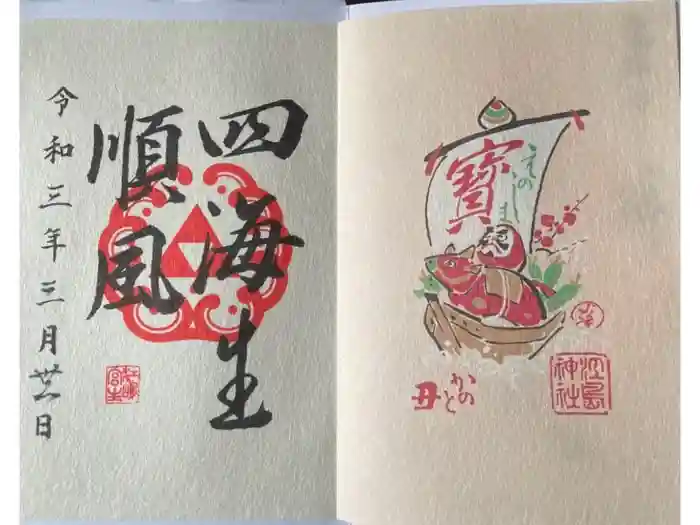 四海生
順風
令和三年三月廿日
寶
えのしま
かのと
丑
江島
神社